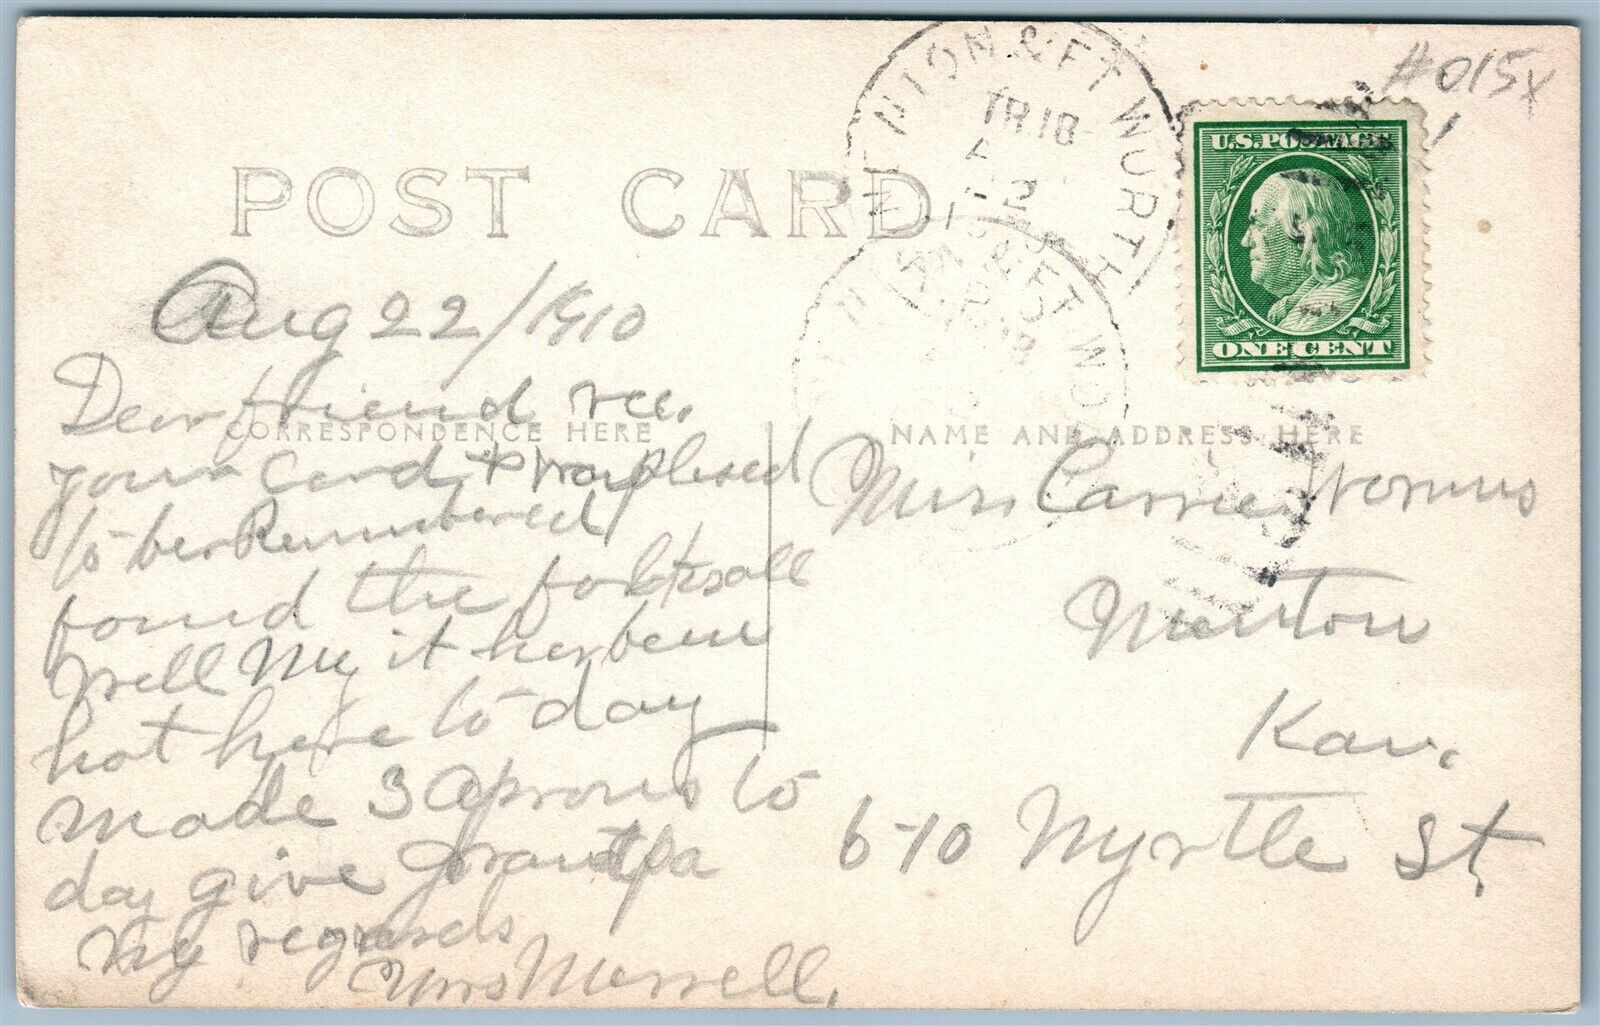 #015x
U.S. POSTAGE
ONE CENT
& FT WORTH
TR 18
POST CARD
CORRESPONDENCE HERE
NAME AND ADDRESS HERE
Aug 22/1910
Dear friend rec.
your card & was plesed
to be Remembered
found the folks all
well My it has been
hot here to day
made 3 aprons to
day give Grandpa
my regards
Mrs Morrell,
Miss Carrie
Newton
Kan.
610 Myrtle St,